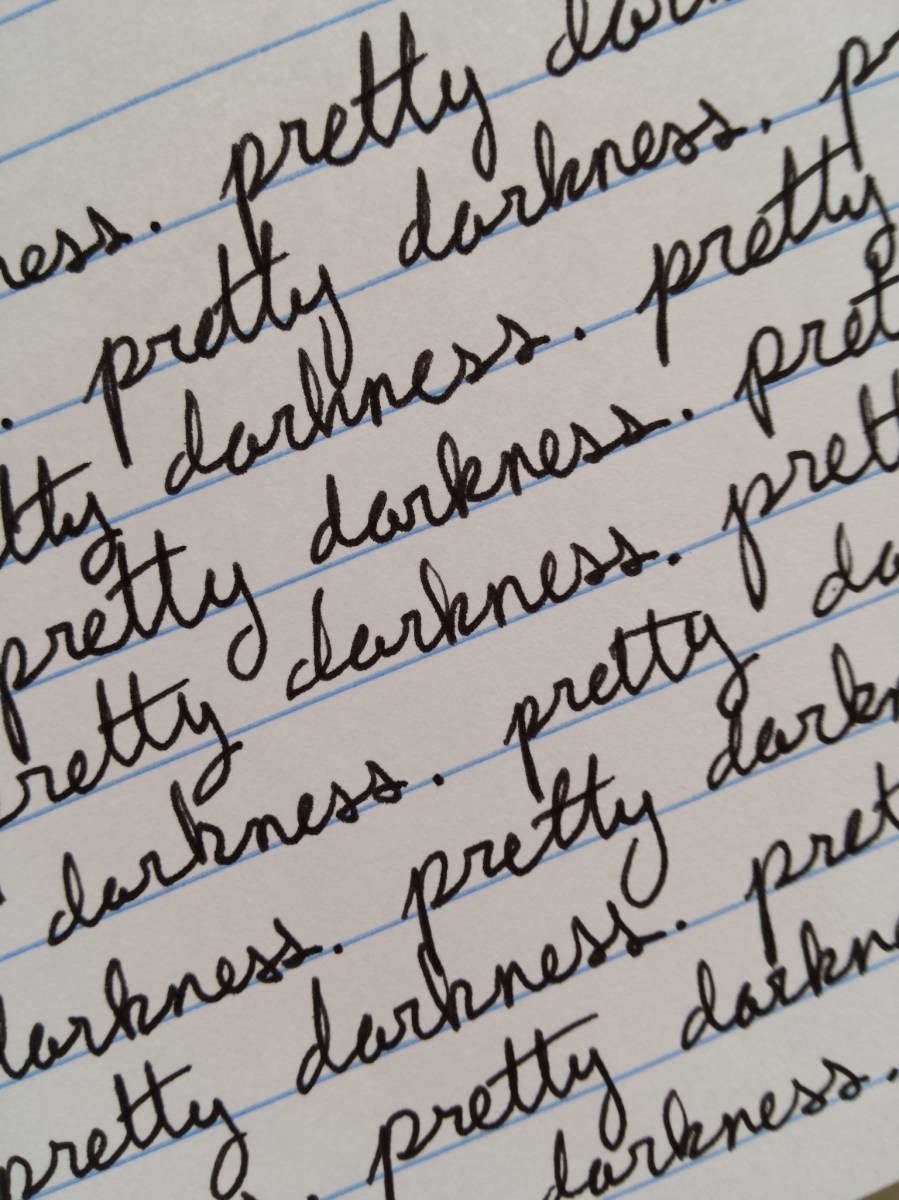 ness. pretty dar
. pretty darkness. pr
tty darkness. pretty
pretty darkness. pret
retty darkness. prett
darkness. pretty da
darkness. pretty darkn
pretty darkness. pret
. pretty darkn
darkness.